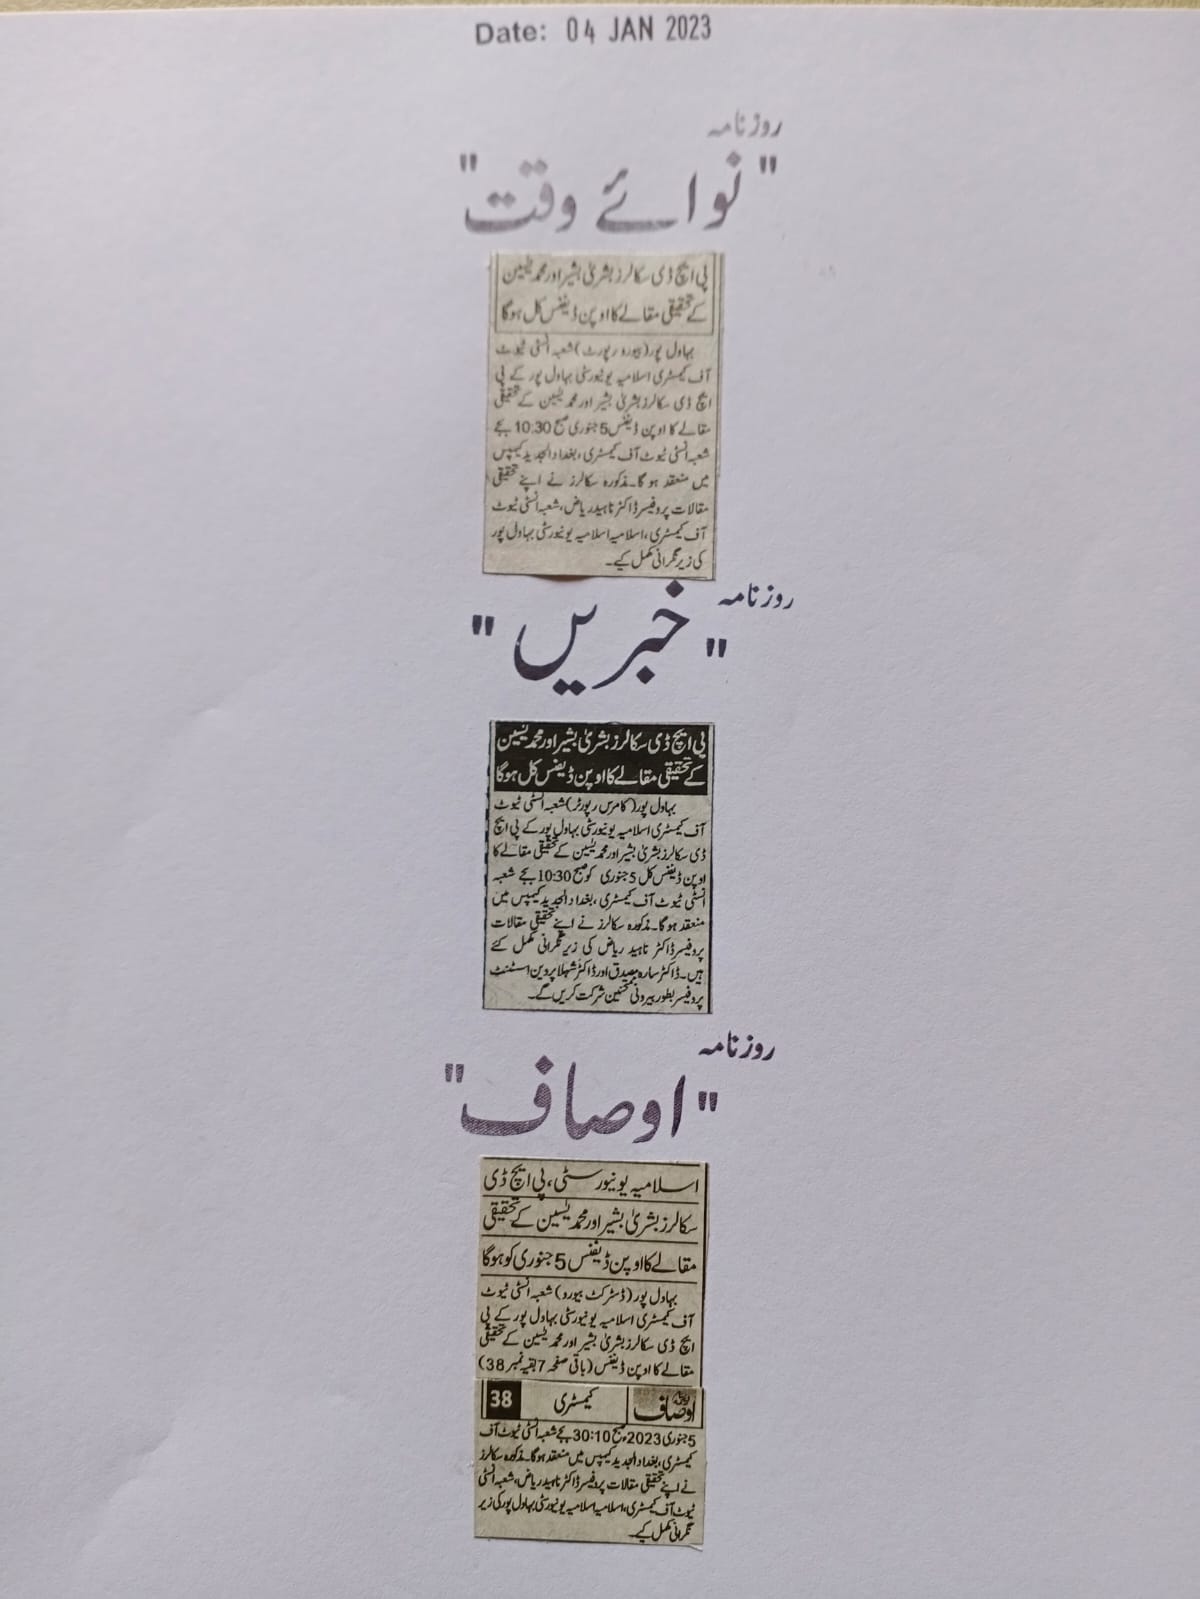 Date: 04 JAN 2023
روزنامہ
"نوائے وقت"
پی ایچ ڈی سکالرز بشریٰ بشیر اور محمد یٰسین
کے تحقیقی مقالے کا اوپن ڈیفنس کل ہوگا
بہاول پور (بیورو رپورٹ) شعبہ انسٹی ٹیوٹ
آف کیمسٹری اسلامیہ یونیورسٹی بہاول پور کے پی
ایچ ڈی سکالرز بشریٰ بشیر اور محمد یٰسین کے تحقیقی
مقالے کا اوپن ڈیفنس 5 جنوری صبح 10:30 بجے
شعبہ انسٹی ٹیوٹ آف کیمسٹری، بغداد الجدید کیمپس
میں منعقد ہو گا۔ مذکورہ سکالرز نے اپنے تحقیقی
مقالات پروفیسر ڈاکٹر ناہید ریاض، شعبہ انسٹی ٹیوٹ
آف کیمسٹری، اسلامیہ اسلامیہ یونیورسٹی بہاول پور
کی زیر نگرانی مکمل کیے۔
روزنامہ
"خبریں"
پی ایچ ڈی سکالرز بشریٰ بشیر اور محمد یٰسین
کے تحقیقی مقالے کا اوپن ڈیفنس کل ہوگا
بہاول پور (کامرس رپورٹر) شعبہ انسٹی ٹیوٹ
آف کیمسٹری اسلامیہ یونیورسٹی بہاول پور کے پی ایچ
ڈی سکالرز بشریٰ بشیر اور محمد یٰسین کے تحقیقی مقالے کا
اوپن ڈیفنس کل 5 جنوری کو صبح 10:30 بجے شعبہ
انسٹی ٹیوٹ آف کیمسٹری، بغداد الجدید کیمپس میں
منعقد ہو گا۔ مذکورہ سکالرز نے اپنے تحقیقی مقالات
پروفیسر ڈاکٹر ناہید ریاض کی زیر نگرانی مکمل کئے
ہیں۔ ڈاکٹر سارہ مصدق اور ڈاکٹر شہلا پروین اسسٹنٹ
پروفیسر بطور بیرونی ممتحنین شرکت کریں گے۔
روزنامہ
"اوصاف"
اسلامیہ یونیورسٹی، پی ایچ ڈی
سکالرز بشریٰ بشیر اور محمد یٰسین کے تحقیقی
مقالے کا اوپن ڈیفنس 5 جنوری کو ہوگا
بہاول پور (ڈسٹرکٹ بیورو) شعبہ انسٹی ٹیوٹ
آف کیمسٹری اسلامیہ یونیورسٹی بہاول پور کے پی
ایچ ڈی سکالرز بشریٰ بشیر اور محمد یٰسین کے تحقیقی
مقالے کا اوپن ڈیفنس (باقی صفحہ 7 بقیہ نمبر 38)
اوصاف کیمسٹری 38
5 جنوری 2023ء صبح 30:10 بجے شعبہ انسٹی ٹیوٹ آف
کیمسٹری، بغداد الجدید کیمپس میں منعقد ہو گا۔ مذکورہ سکالرز
نے اپنے تحقیقی مقالات پروفیسر ڈاکٹر ناہید ریاض، شعبہ انسٹی
ٹیوٹ آف کیمسٹری، اسلامیہ اسلامیہ یونیورسٹی بہاول پور کی زیر
نگرانی مکمل کیے۔